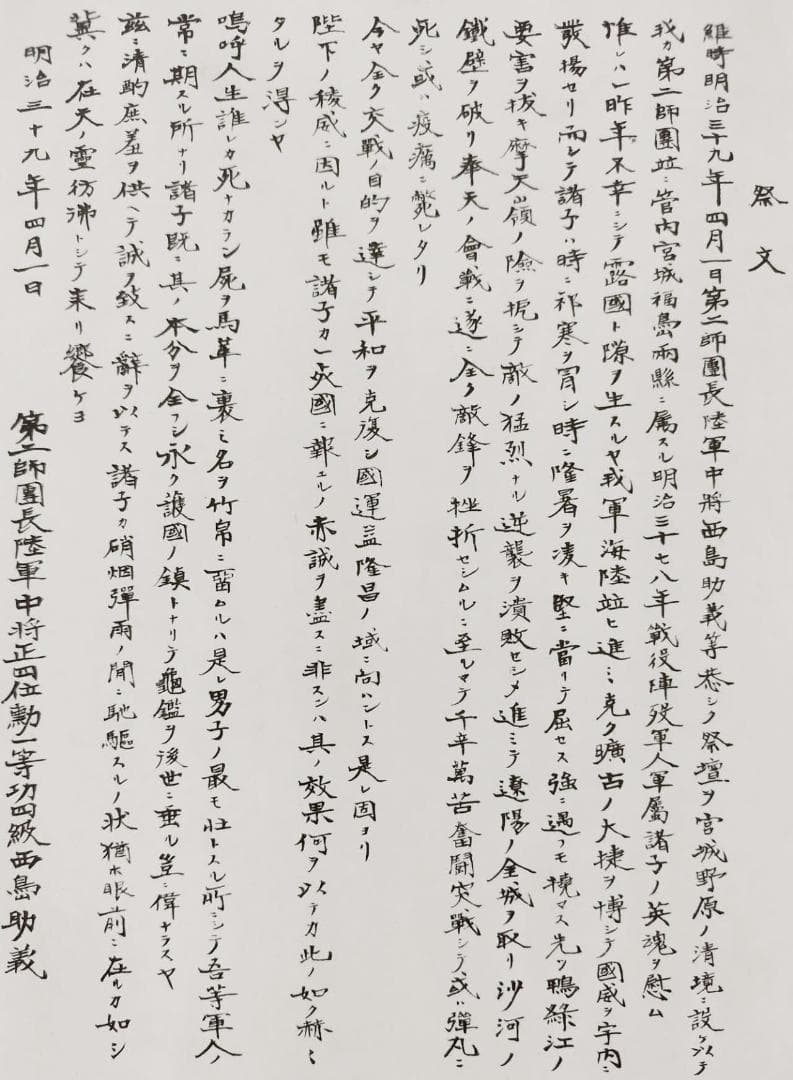 祭文
維時明治三十九年四月一日第二師團長陸軍中將西島助義等恭シク祭壇ヲ宮城野原ノ清境ニ設ケ以テ
我カ第二師團竝ニ管内宮城福島兩縣ニ属スル明治三十七八年戰役陣歿軍人軍屬諸子ノ英魂ヲ慰ム
惟レハ一昨年不幸ニシテ露國ト隙ヲ生スルヤ我軍海陸竝ヒ進ミ克ク曠古ノ大捷ヲ博シテ國威ヲ宇内ニ
發揚セリ而シテ諸子ハ時ニ祁寒ヲ冒シ時ニ隆暑ヲ凌キ堅ニ當リテ屈セス強ニ遇フモ撓マス先ツ鴨綠江ノ
要害ヲ拔キ摩天嶺ノ險ヲ扼シテ敵ノ猛烈ナル逆襲ヲ潰敗セシメ進ミテ遼陽ノ金城ヲ取リ沙河ノ
鐵壁ヲ破リ奉天ノ會戰ニ遂ニ全ク敵鋒ヲ挫折セシムルニ至ルマテ千辛萬苦奮闘突戰シテ或ハ彈丸ニ
死シ或ハ疫癘ニ斃レタリ
今ヤ全ク交戰ノ目的ヲ達シテ平和ヲ克復シ國運益隆昌ノ域ニ向ハントス是レ固ヨリ
陛下ノ稜威ニ因ルト雖モ諸子カ一死國ニ報ユルノ赤誠ヲ盡スニ非スンハ其ノ效果何ヲ以テカ此ノ如ク赫々
タルヲ得ンヤ
嗚呼人生誰レカ死ナカラン屍ヲ馬革ニ裹ミ名ヲ竹帛ニ留ムルハ是レ男子ノ最モ壯トスル所ニシテ吾等軍人ノ
常ニ期スル所ナリ諸子既ニ其ノ本分ヲ全フシ永ク護國ノ鎮トナリテ龜鑑ヲ後世ニ垂ル豈ニ偉ナラスヤ
茲ニ清酌庶羞ヲ供ヘテ誠ヲ致スニ辭ヲ以テス諸子カ硝烟彈雨ノ間ニ馳驅スルノ狀猶ホ眼前ニ在ルカ如シ
冀クハ在天ノ靈彷彿トシテ來リ饗ケヨ
明治三十九年四月一日
第二師團長陸軍中将正四位勳一等功四級西島助義